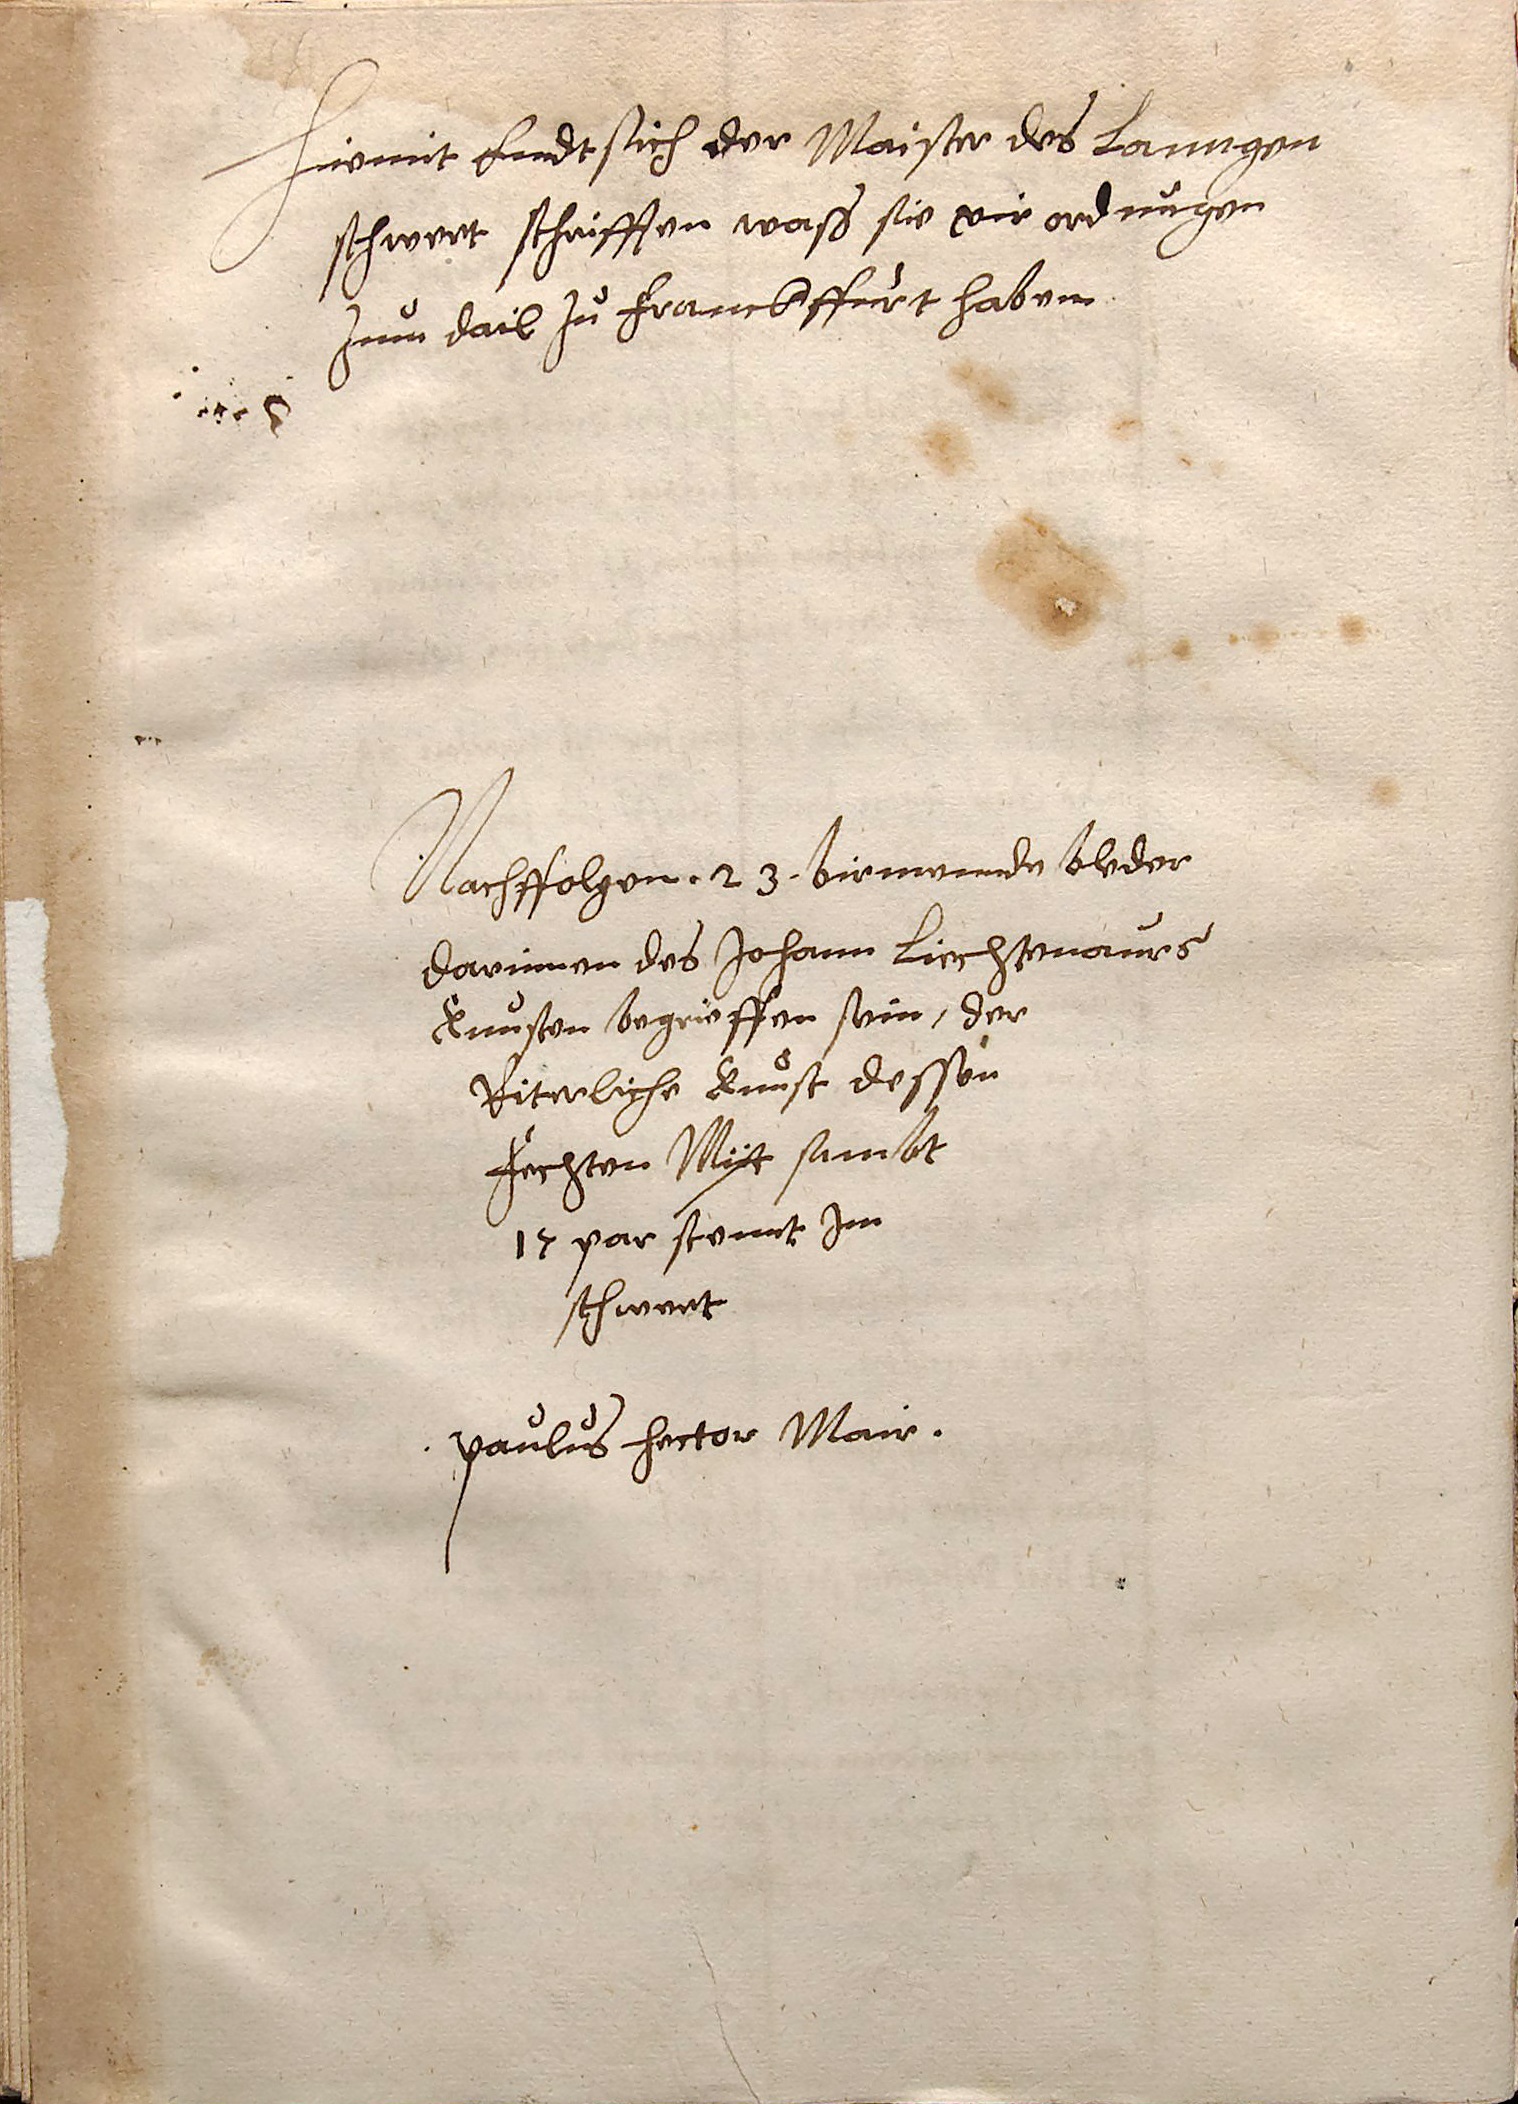 Hiemit Endt sich der Maister des Lanngen
schwert schrifften wass sie vir ordnŭngen
Inn dail zŭ Franckffŭrt haben
Nachffolgen . 2 3 . birmennde bleder
darinnen des Johann Liechtenaŭrs
Kŭnsten begrieffen sein / der
Riterliche Kŭnst dessen
Fechten Mit sambt
17 par stennt Im
schwert
. paŭlŭs hector Mair .